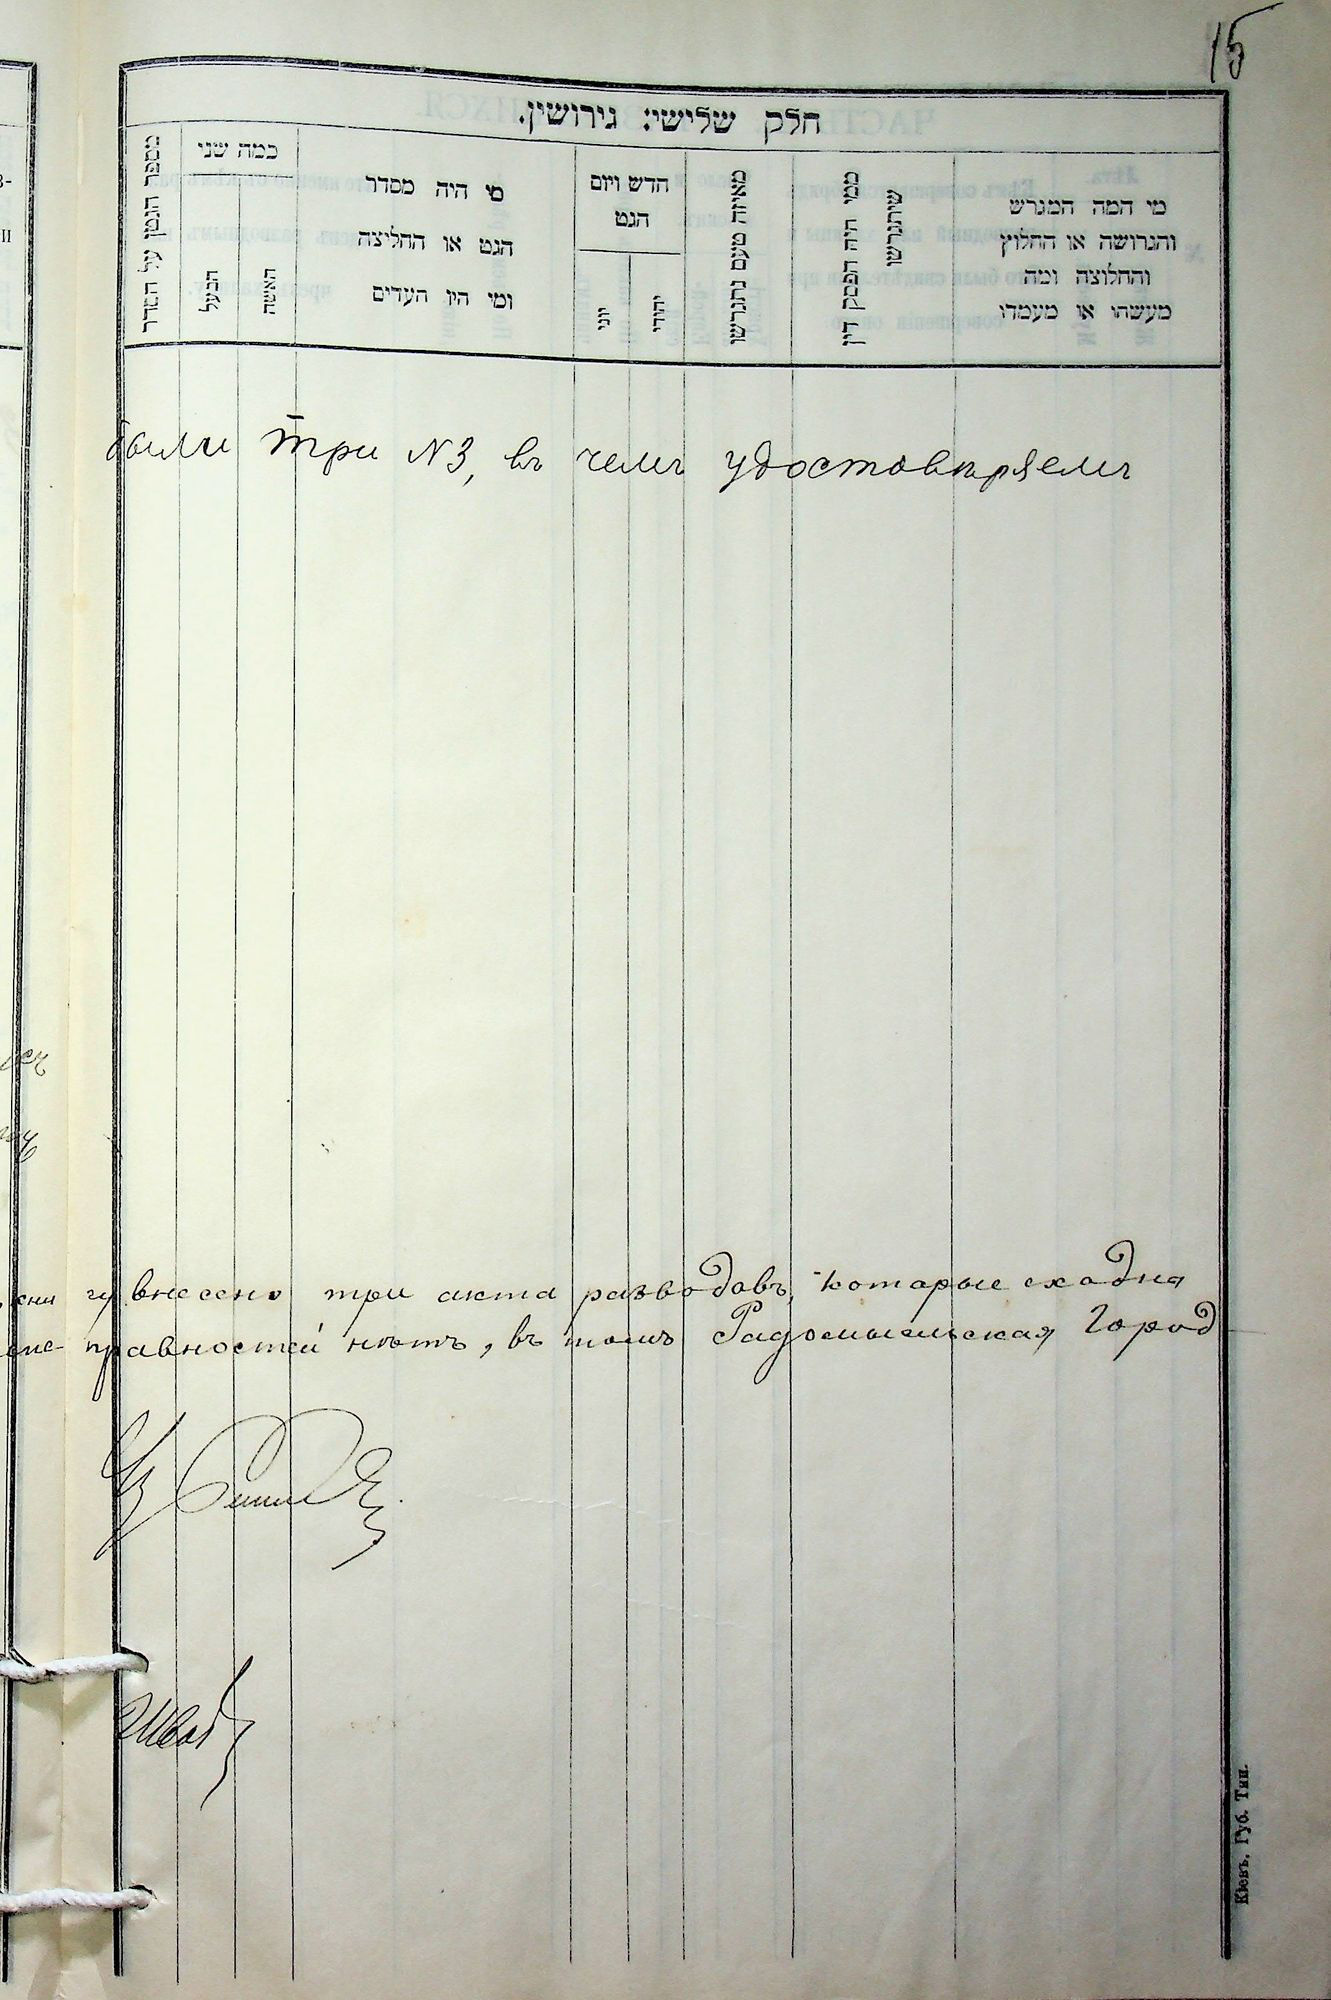 15
חלק שלישי: גירושין.
מספר הגטן על הסדר
כמה שני
הבעל
האשה
מי היה מסדר
הגט או החליצה
ומי היו העדים
חדש ויום
הגט
יוני
יהודי
מאיזה טעם נתגרשו
ממי היה הפסק דין
שיתגרשו
מי המה המגרש
והגרושה או החלוץ
והחלוצה ומה
מעשהו או מעמדו
были три N 3, въ чемъ удостовѣряемъ
кни гу внесено три акта разводовъ, которые сходны
неис- правностей нѣтъ, въ томъ Радомысльская Город
Кіевъ, Губ. Тип.